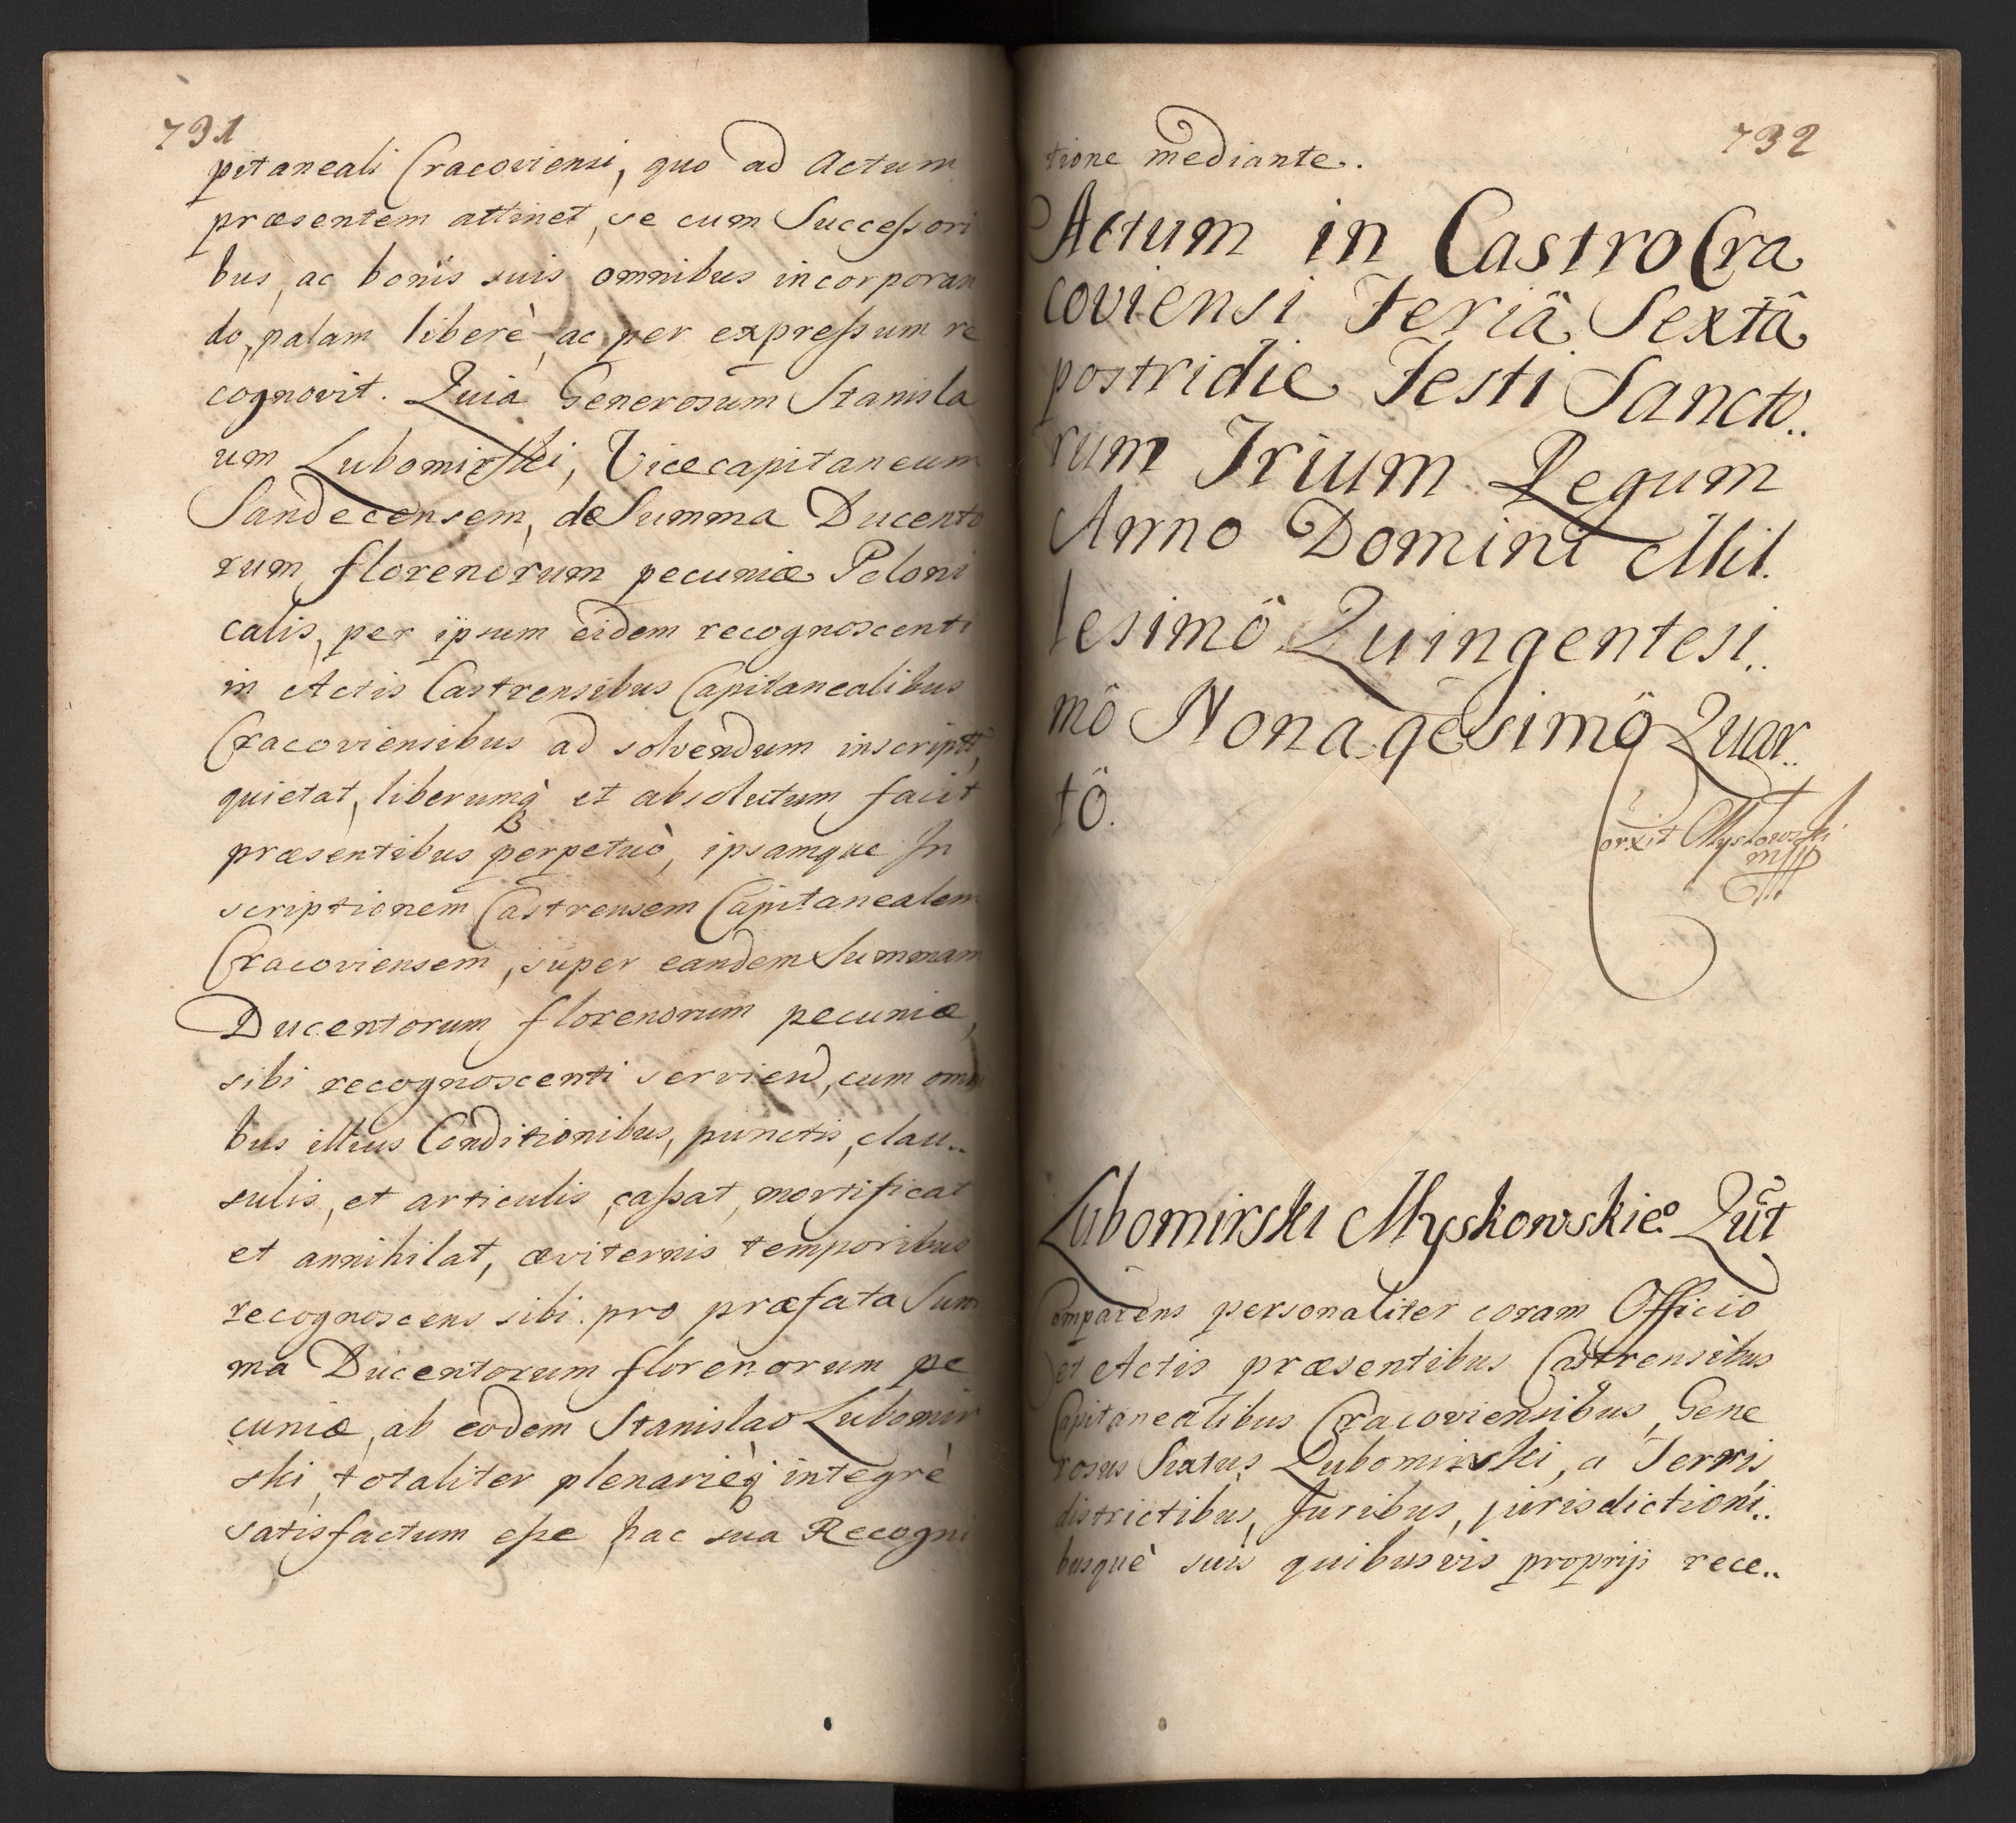 731
pitaneali Cracoviensi, quo ad Actum
præsentem attinet, se cum Successori
bus, ac bonis suis omnibus incorporan
do, palam liberè, ac per expressum re
cognovit. Quia Generosum Stanisla
um Lubomirski, Vicecapitaneum
Sandecensem, de Summa Ducento
rum florenorum pecuniæ Poloni
calis, per ipsum eidem recognoscenti
in Actis Castrensibus Capitanealibus
Cracoviensibus ad solvendum inscript
quietat, liberumq et absolutum facit
præsentibus perpetuò, ipsamque In
scriptionem Castrensem Capitanealem
Cracoviensem, super eandem Summam
Ducentorum florenorum pecuniæ,
sibi recognoscenti servien, cum omni
bus illius Conditionibus, punctis, clau..
sulis, et articulis, cassat, mortificat
et annihilat, æviternis temporibus
recognoscens sibi pro præfata Sum
ma Ducentorum florenorum pe
cuniæ, ab eodem Stanislao Lubomir
ski, totaliter plenarièq integrè
satisfactum esse, hac sua Recogni
732
tione mediante.
Actum in Castro Cra
coviensi Feriâ Sextâ
postridie Festi Sancto..
rum Trium Regum
Anno Domini Mil.
lesimô Quingentesi..
mô Nonagesimô Quar..
tô.
Lubomirski Myskowskie.º Qut
Comparens personaliter coram Officio
et Actis præsentibus Castrensibus
Capitanealibus Cracoviensibus, Gene
rosus Lubomirski, a Terris,
districtibus, Juribus, jurisdictioni..
busquè suis quibusvis proprijs rece..